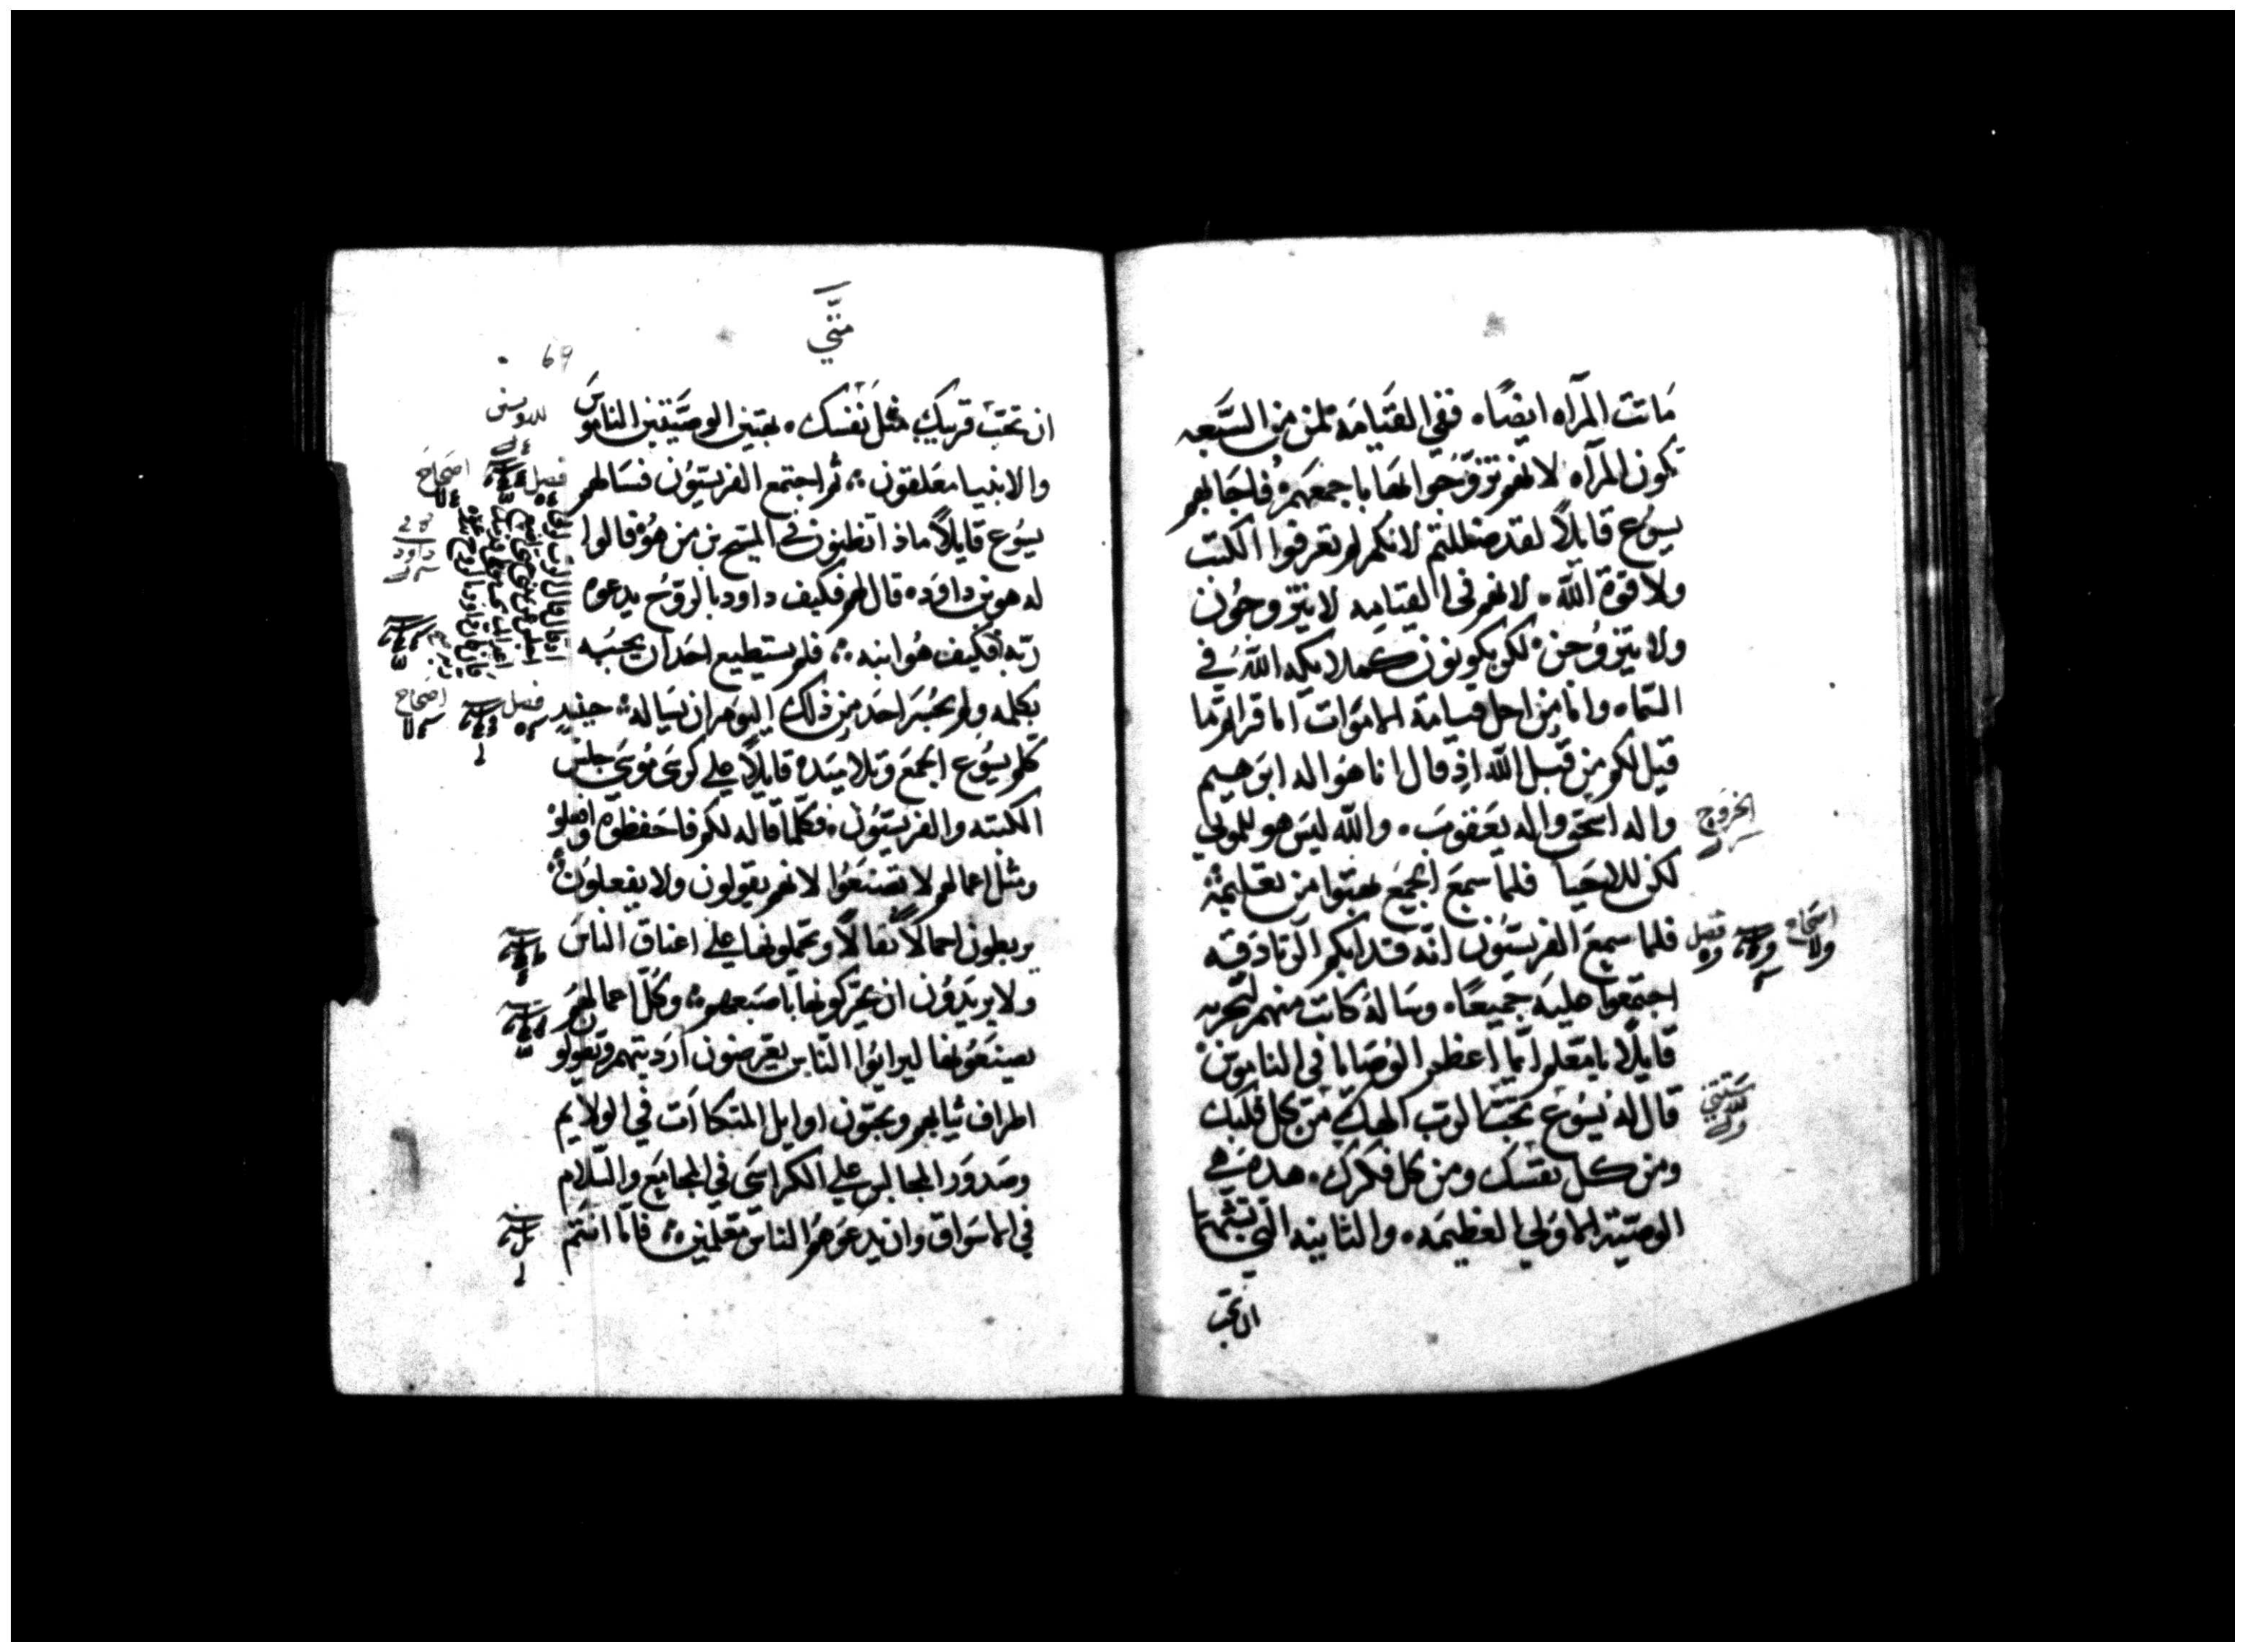 ماتت المرآه ايضًا ۰ ففي القيامة لمن من السبعه
تكون المرآه لانهم تزوجوا لها باجمعهم فاجابهم
يسوع قايلاً لقد ضللتم لانكم لم تعرفوا الكتب
ولا قوة الله ۰ لانهم في القيامه لا يتزوجون
ولا يتزوجن لكن يكونون كملايكه الله في
السماء وامّا من اجل قيامة الاموات اما قراتم ما
قيل لكم من قبل الله اذ قال انا هو اله ابرهيم
واله اسحق واله يعقوب ۰ والله ليس هو للموتي
الخروج
لكن للاحيا فلما سمع الجمع بهتوا من تعليمه
فلما سمع الفريسيون انه قد ابكم الزنادقه
فصل
اجتمعوا عليه جميعًا ۰ وساله كاتب منهم ليجربه
قايلاً يا معلم ايما اعظم الوصايا في الناموس
قال له يسوع تحب الرب الهك من كل قلبك
ومن كل نفسك ومن كل فكرك ۰ هده هي
الوصيّة الاولي العظيمه ۰ والثانيه التي تشبهها
ان تحب
متي
69
ان تحب قريبك مثل نفسك ۰ بهتين الوصيتين الناموس
والانبيا معلقون ۞ ثم اجتمع الفريسيون فسالهم
فصل
اصحاح
يسوع قايلاً ماذا تظنون في المسيح بن من هو قالوا
داود
له هو بن داود ۰ قال لهم فكيف داود بالروح يدعوه
ربه فكيف هو ابنه ۞ فلم يستطيع احد ان يجيبه
بكلمه ولم يجسر احد من ذلك اليوم ان يساله ۞ حينيد
فصل
اصحاح
كلم يسوع الجمع وتلاميده قايلاً علي كرسي موسي جلس
الكتبه والفريسيون ۰ فكلما قاله لكم فاحفظوه وافعلو
ومثل اعمالهم لا تصنعوا لانهم يقولون ولا يفعلون
يربطون احمالاً ثقالاً ويحملونها علي اعناق الناس
ولا يريدون ان يحركونها باصبعهم ۞ وكل اعمالهم
يصنعونها ليرايوا الناس يعرضون ارديتهم ويطولو
اطراف ثيابهم ويحبون اوايل المتكاات في الولايم
وصدور المجالس علي الكراسي في المجامع والسلام
في الاسواق وان يدعوهم الناس معلمين ۞ فاما انتم